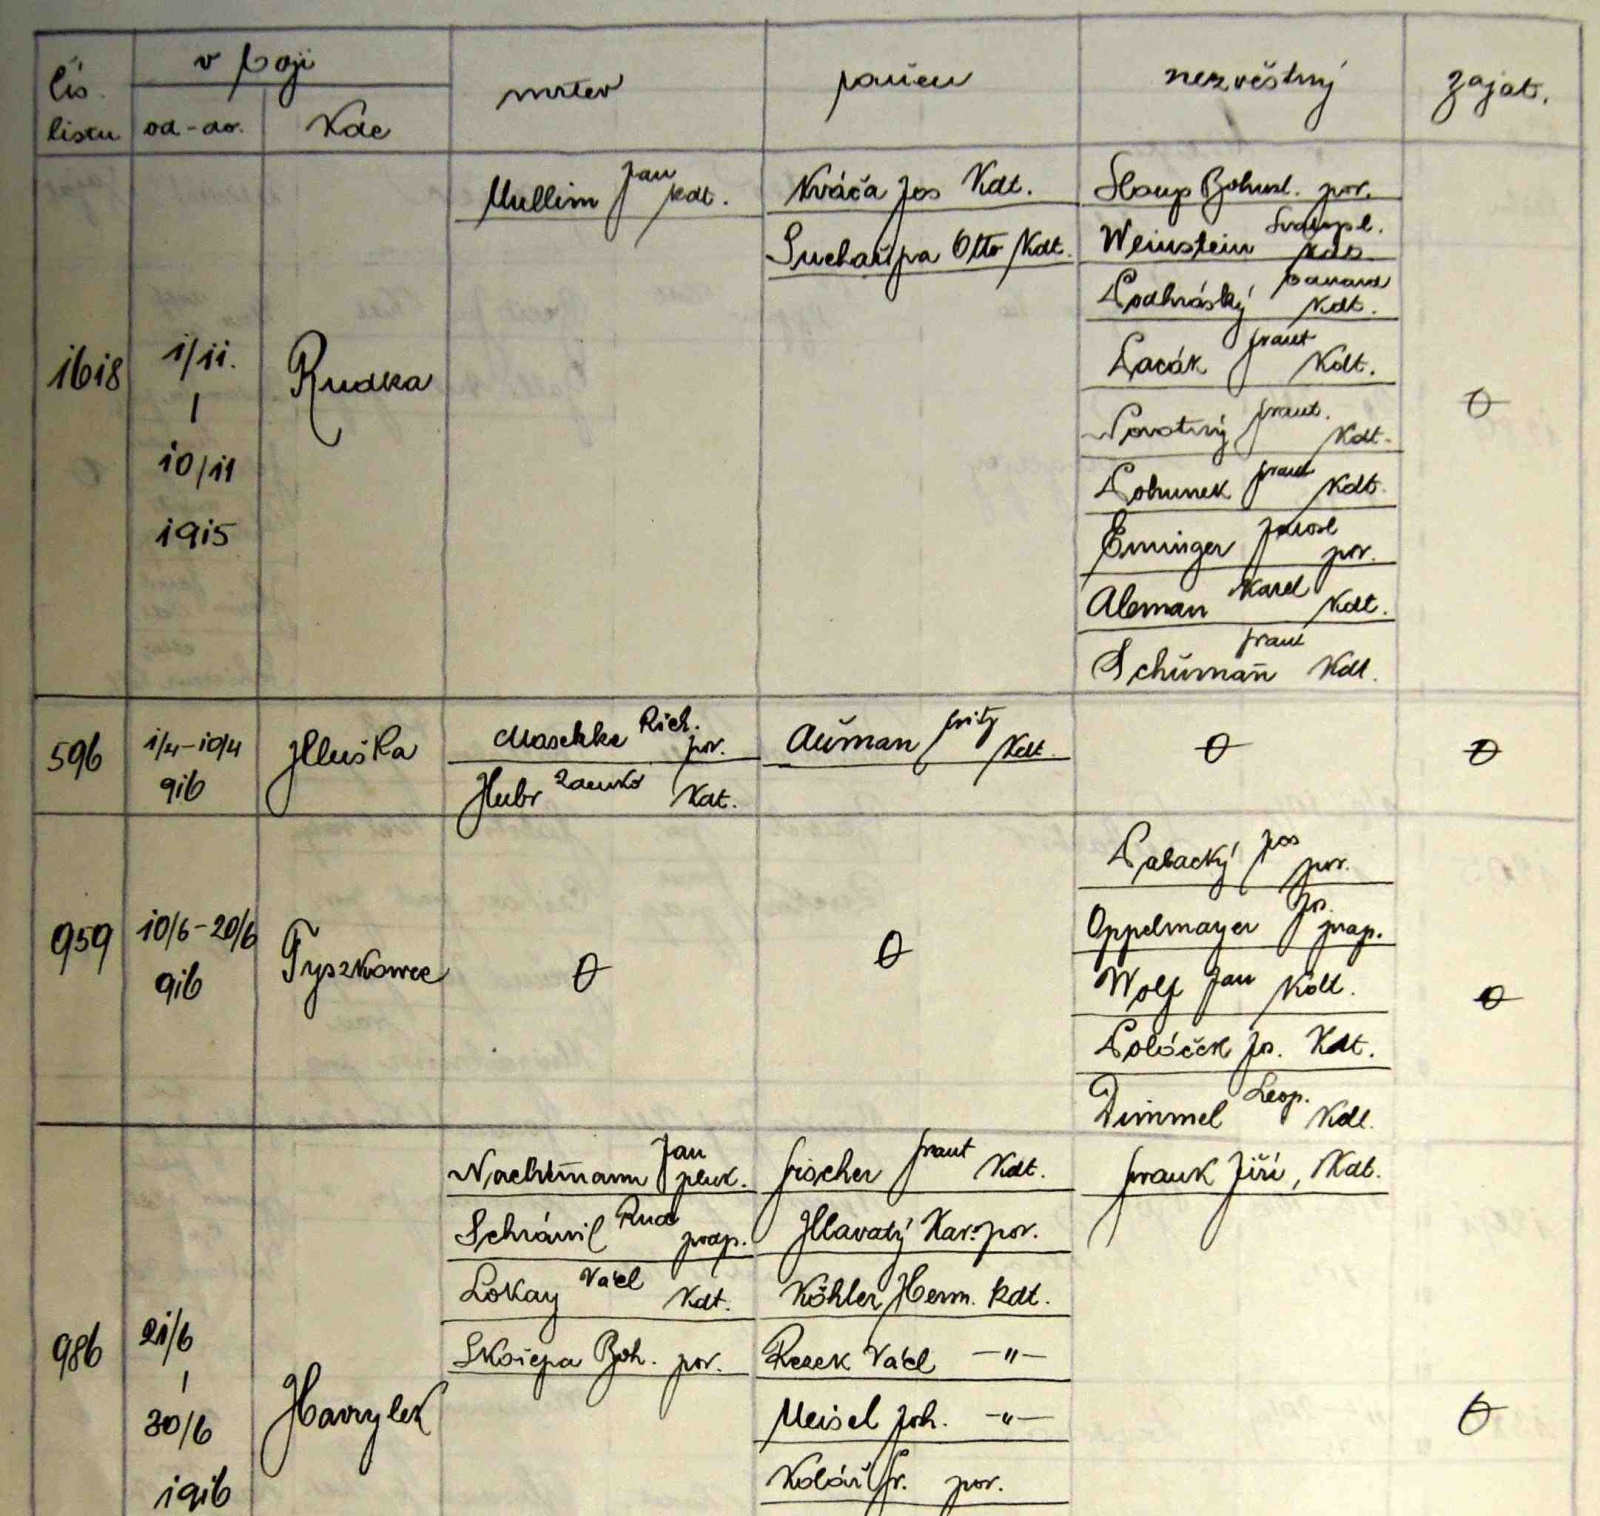 čís. listu
v boji
od-do.
Kde
mrtev
raněn
nezvěstný
zajat.
1618
1/11.
|
10/11
1915
Rudka
Mullim Jan kdt.
Kváča Jos Kdt.
Suchařípa Otto Kdt.
Sloup Bohusl. por.
Weinstein Kdt.
Podhráský Kdt.
Pacák Frant Kdt.
Novotný Frant. Kdt.
Pohunek Frant Kdt.
Eminger Jarosl por.
Aleman Karel Kdt.
Schümann Frant Kdt.
0
596
1/4-10/4
916
Hluška
Maschke Rich. por.
Hubr Zdenko Kdt.
Auman Fritz Kdt.
0
0
959
10/6-20/6
916
Tyszkowce
0
0
Palacký Jos por.
Oppelmayer Jos. prap.
Wolf Jan Kdt.
Poláček Jos. Kdt.
Dimmel Leop. Kdt.
0
986
21/6
|
30/6
1916
Havrylek
Nachtmann Jan pluk.
Schránil Rud prap.
Lokay Václ Kdt.
Skořepa Boh. por.
Fischer Frant Kdt.
Hlavatý Kar. por.
Köhler Herm. kdt.
Rezek Václ —"—
Meisel Joh. —"—
Kolář Fr. por.
Frank Jiří, Kdt.
0